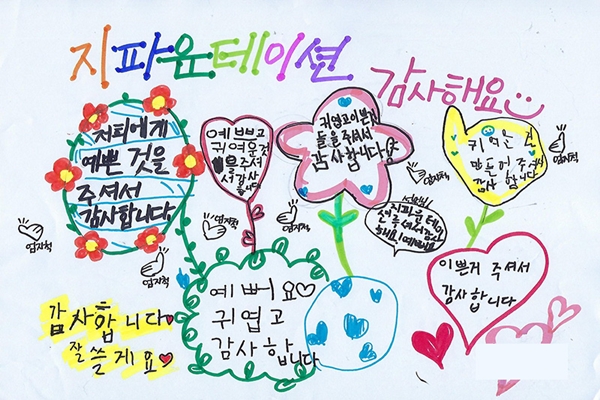 지파운데이션
감사해요
저희에게
예쁜 것을
주셔서
감사합니다
예쁘고
귀여운것
을 주셔
서 감사
합니다
귀엽고 이쁜
들을 주셔서
감사합니다
귀여운
만들어 주셔서
감사합니다
엄지척
엄지척
엄지척
엄지척
엄지척
엄지척
선생님
지파운데이
션 주셔서
해요 예뻐요
예뻐요
귀엽고
감사합니다
이쁜거 주셔서
감사합니다
감사합니다
잘 쓸게요